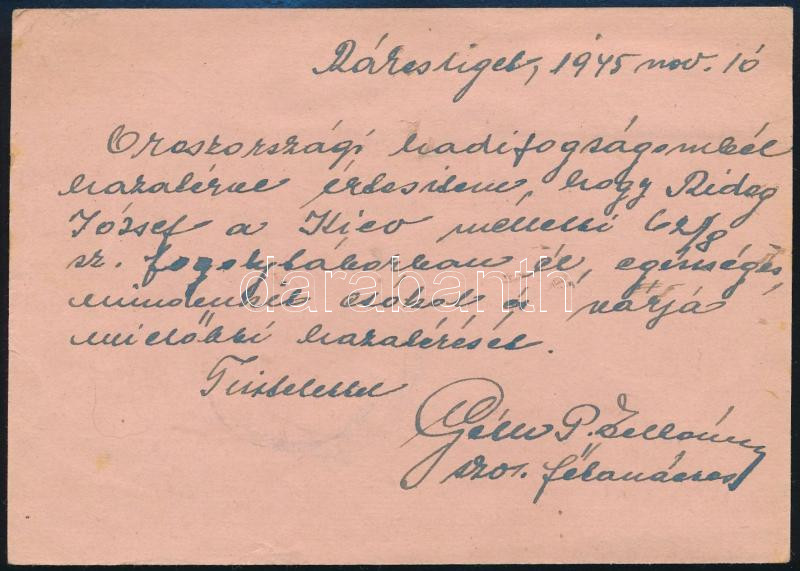 Rákosliget, 1945 nov. 10
Oroszországi hadifogságomból
hazatérve értesitem, hogy Rideg
József a Kiev melletti 62/8
sz. fogolytáborban él, egészséges,
mindenkit csókol és várja
mielőbbi hazatérését.
Tisztelettel
P.
főtanácsos
darabanth